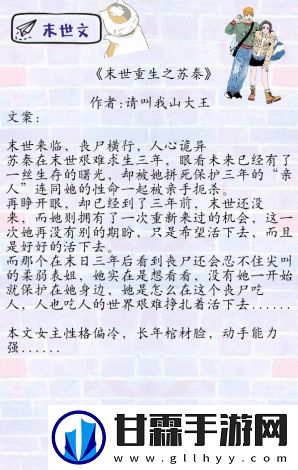 末世文
《末世重生之苏秦》
作者:请叫我山大王
文案:
末世来临，丧尸横行，人心诡异
苏秦在末世艰难求生三年，眼看未来已经有了
一丝生存的曙光，却被她拼死保护三年的“亲
人”连同她的性命一起被亲手扼杀。
再睁开眼，却已经到了三年前，末世还没
来，而她则拥有了一次重新来过的机会，这一
次她再没有别的期盼，只是希望活下去，而且
是好好的活下去。
而那个在末日三年后看到丧尸还会忍不住尖叫
的柔弱表姐，她实在是想看看，没有她一开始
就保护在她身边，她是怎么在这个丧尸吃
人，人也吃人的世界艰难挣扎着活下去......
本文女主性格偏冷，长年棺材脸，动手能力
强......
甘霖手游网
www.gllhyy.com